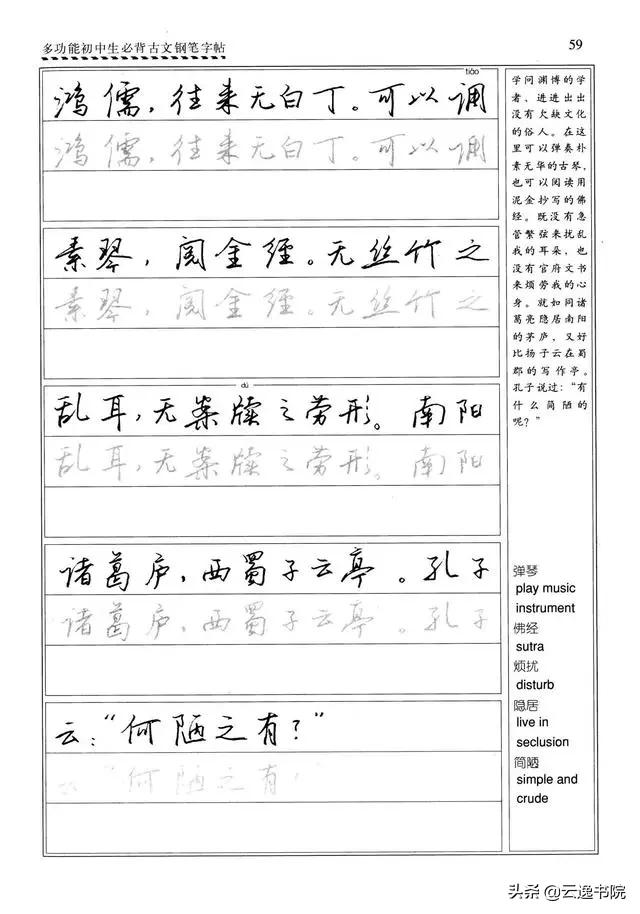 多功能初中生必背古文钢笔字帖
59
tiáo
鸿儒，往来无白丁。可以调
鸿儒，往来无白丁。可以调
素琴，阅金经。无丝竹之
素琴，阅金经。无丝竹之
dú
乱耳，无案牍之劳形。南阳
乱耳，无案牍之劳形。南阳
诸葛庐，西蜀子云亭。孔子
诸葛庐，西蜀子云亭。孔子
云：“何陋之有？”
云：“何陋之有？”
学问渊博的学
者，进进出出
没有欠缺文化
的俗人。在这
里可以弹奏朴
素无华的古琴，
也可以阅读用
泥金抄写的佛
经。既没有急
管繁弦来扰乱
我的耳朵，也
没有官府文书
来烦劳我的心
身。就如同诸
葛亮隐居南阳
的茅庐，又好
比扬子云在蜀
郡的写作亭。
孔子说过：“有
什么简陋的
呢？”
弹琴
play music
instrument
佛经
sutra
烦扰
disturb
隐居
live in
seclusion
简陋
simple and
crude
头条@云逸书院